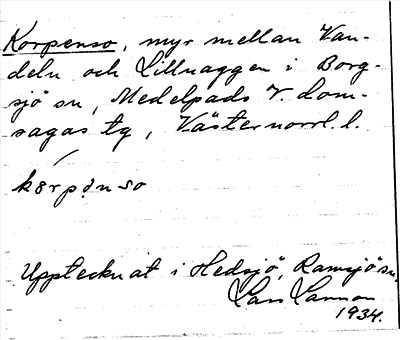 Korpenso, myr mellan Van-
deln och Lillnaggen i Borg-
sjö sn, Medelpads V. dom-
sagas tg, Västernorrl. l.
kørpønso
Upptecknat i Hedsjö, Ramsjö sn,
Lars Larsson
1934.